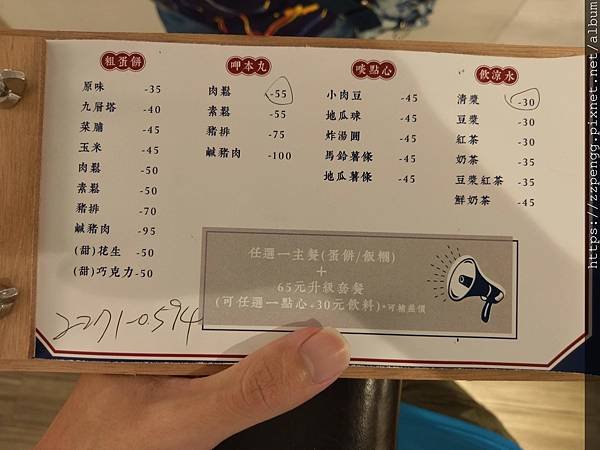 粗蛋餅
原味 -35
九層塔 -40
菜脯 -45
玉米 -45
肉鬆 -50
素鬆 -50
豬排 -70
鹹豬肉 -95
(甜)花生 -50
(甜)巧克力-50
呷本丸
肉鬆 -55
素鬆 -55
豬排 -75
鹹豬肉 -100
啖點心
小肉豆 -45
地瓜球 -45
炸湯圓 -45
馬鈴薯條 -45
地瓜薯條 -45
飲涼水
清漿 -30
豆漿 -30
紅茶 -30
奶茶 -35
豆漿紅茶 -35
鮮奶茶 -45
任選一主餐(蛋餅/飯糰)
+
65元升級套餐
(可任選一點心+30元飲料)*可補差價
2271-0594
https://zzpengg.pixnet.net/album